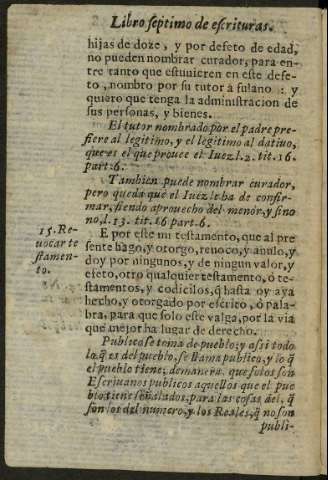 Libro septimo de escrituras.
hijas de doze, y por defeto de edad,
no pueden nombrar curador, para en-
tre tanto que estuuieren en este defe-
to, nombro por su tutor à fulano: y
quiero que tenga la administracion de
sus personas, y bienes.
El tutor nombrado por el padre pre-
fiere al legitimo, y el legitimo al datiuo,
que es el que prouee el Iuez l. 2. tit. 16.
part. 6.
Tambien puede nombrar curador,
pero queda que el Iuez le ha de confir-
mar, siendo aprouecho del menor, y sino
no, l. 13. tit. 16 part. 6.
15. Re-
uocar te
stamen-
to.
E por este mi testamento, que al pre
sente hago, y otorgo, reuoco, y anulo, y
doy por ningunos, y de ningun valor, y
efeto, otro qualquier testamento, ò te-
stamentos, y codicilos, q̃ hasta oy aya
hecho, y otorgado por escrito, ò pala-
bra, para que solo este valga, por la via
que mejor ha lugar de derecho.
Publico se toma de pueblo; y assi todo
lo q̃ es del pueblo, se llama publico, y lo q̃
el pueblo tiene; de manera, que solos son
Escriuanos publicos aquellos que el pue
blo tiene señalados, para las cosas del, q̃
son los del numero, y los Reales, q̃ no son
publi-